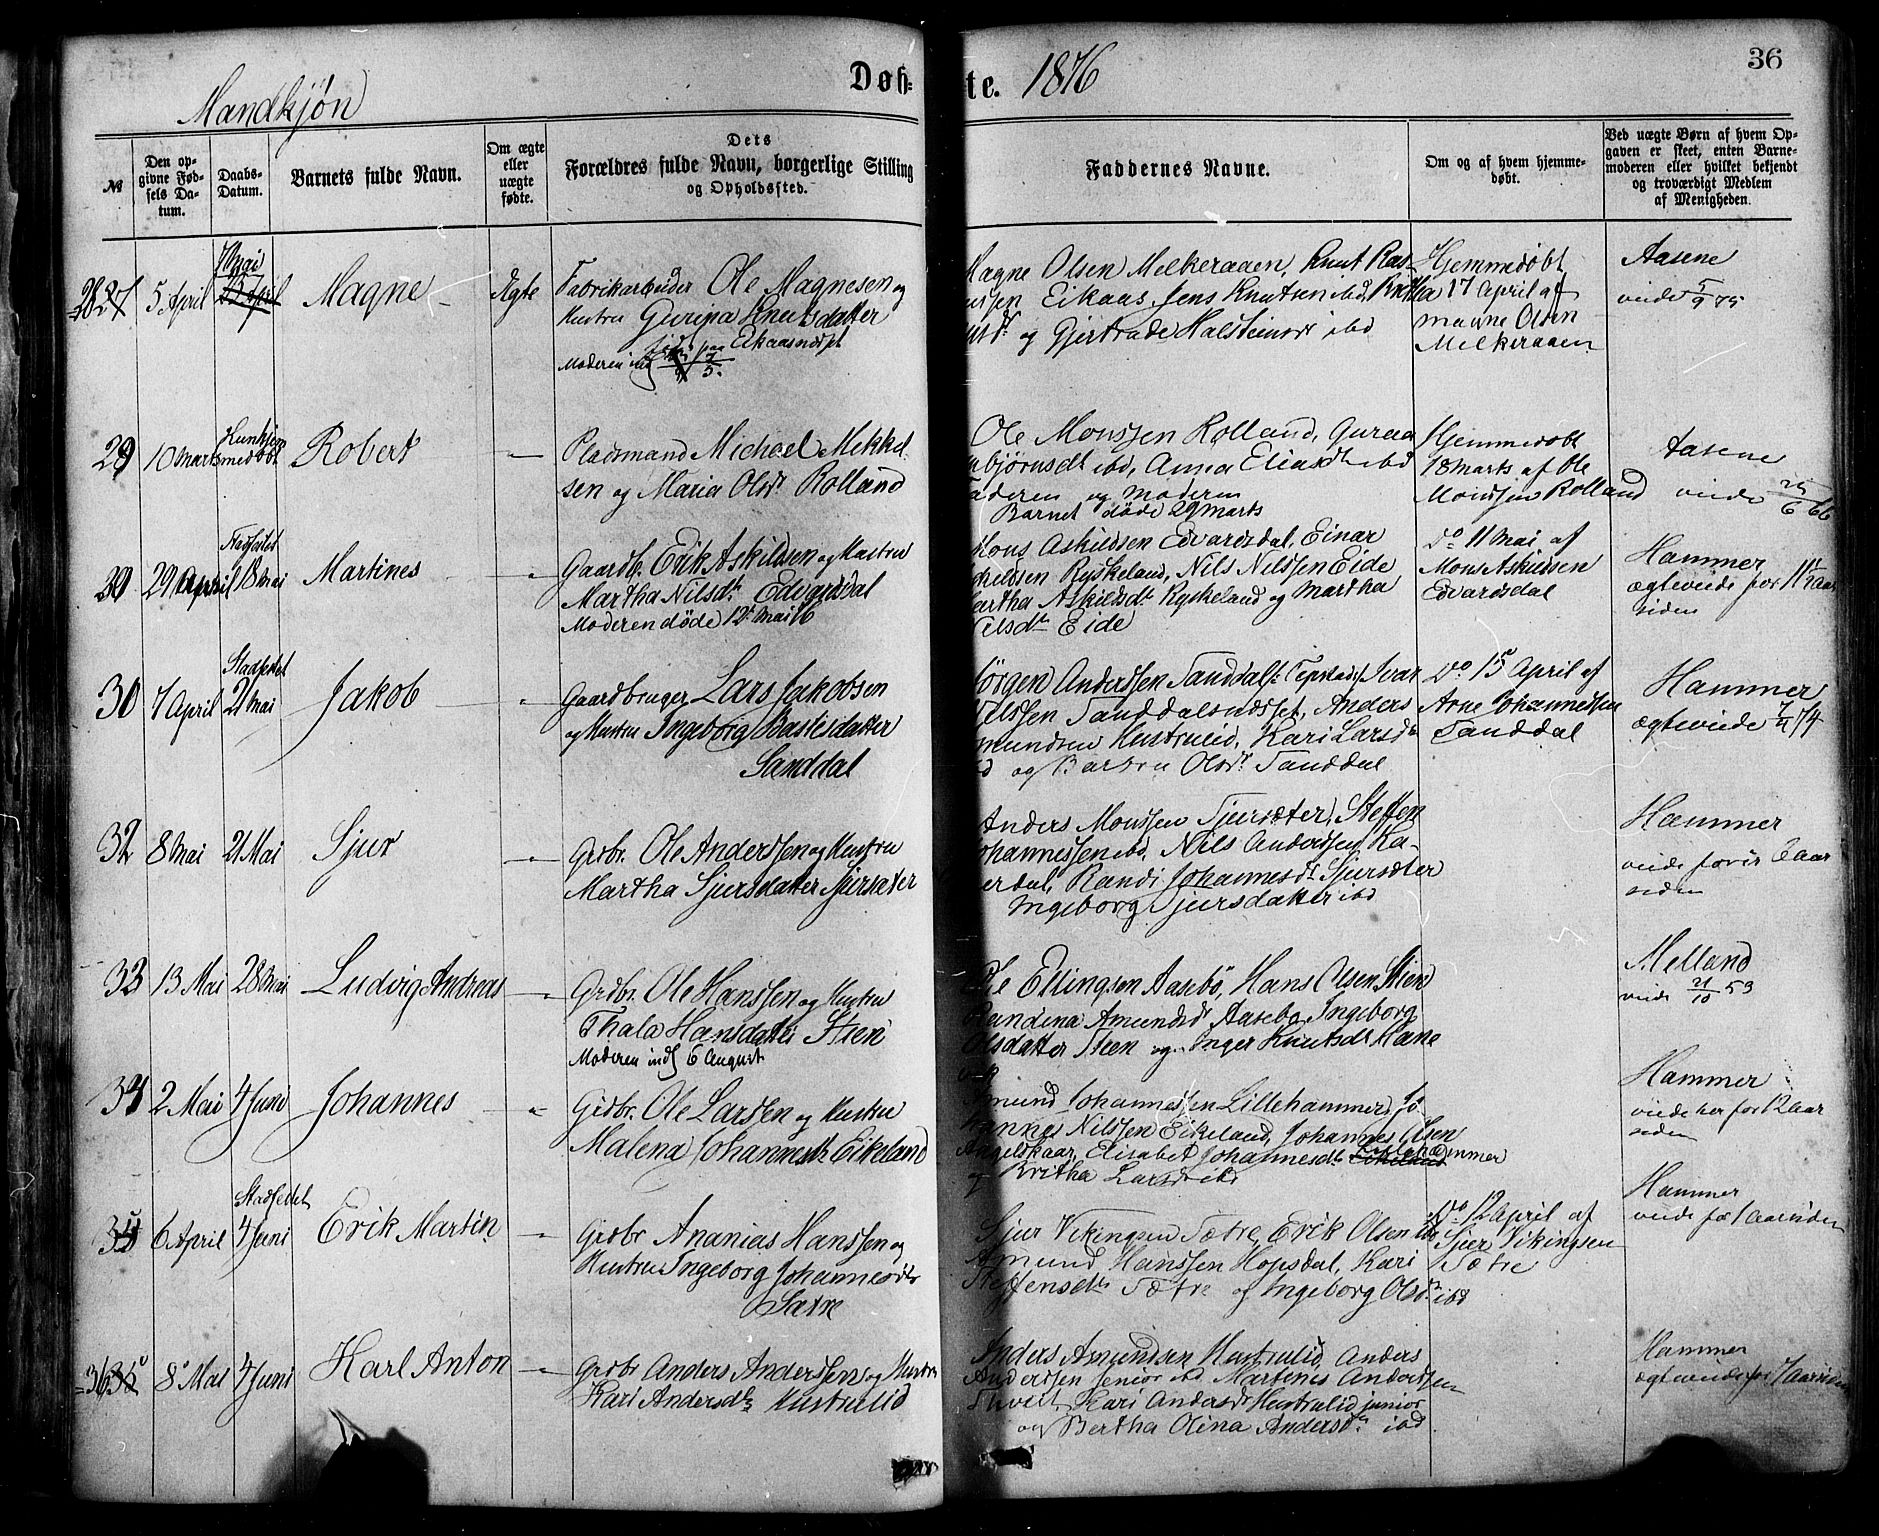 36
Mandkjøn
Døb=
te. 1876
№
Den op-
givne Fød-
sels Da-
tum.
Daabs-
Datum.
Barnets fulde Navn.
Om ægte
eller
uægte
fødte.
Dets
Forældres fulde Navn, borgerlige Stilling
og Opholdssted.
Faddernes Navne.
Om og af hvem hjemme-
døbt.
Ved uægte Børn af hvem Op-
gaven er skeet, enten Barne-
moderen eller hvilket bekjendt
og troværdigt Medlem
af Menigheden.
28 27
5 April
7 Mai
23 April
Magne
Ægte
Fabrikarbeider Ole Magnesen og
Hustru Guripa Knutsdatter
Eikaasnæsset
Moderen ind
Magne Olsen Melkeraaen, Knut Ras-
mussen Eikaas Jens Knutsen ibd, Britha
og Gjertrude Halsteinsdr ibd
Hjemmedøbt
17 April af
Magne Olsen
Melkeraaen
Aasene
viede 5/9 75
29
10 Marts
Kun hjem
medøbt
Robert
Pladsmand Michael Mikkel
sen og Maria Olsdr Rolland
Ole Monssen Rolland, Guren
bjørnsdt ibd, Anna Eliasdt ibd
Faderen og Moderen
Barnet døde 29 Marts
Hjemmedøbt
18 Marts af Ole
Monssen Rolland
Aasene
viede 25/6 66
30
29 April
Stadfæstet
18 Mai
Martines
Gaardb. Erik Askildsen og Hustru
Martha Nilsdt. Edvardsdal
Moderen døde 12t Mai 76
Mons Askildsen Edvardsdal, Einar
Askildsen Ryskeland, Nils Nilssen Eide
Martha Askildsdt Ryskeland og Martha
Nilsdtr Eide
do 11 Mai af
Mons Askildsen
Edvardsdal
Hammer
ægteviede for 11 1/2 Aar
siden
31
7 April
Stadfestet
21 Mai
Jakob
Gaardbruger Lars Jakobsen
og Hustru Ingeborg Bastesdatter
Sanddal
Jørgen Anderssen Sanddal, Ivar
Nilssen Sanddalsnæsset, Anders
Amundsen Hustrulid, Kari Larsdr
ibd og Barbru Olsdr Sanddal
do 15 April af
Arne Johannessen
Sanddal
Hammer
ægteviede 74
32
8 Mai
21 Mai
Sjur
Grdbr. Ole Anderssen og Hustru
Martha Sjursdatter Sjursæter
Anders Monssen Sjursæter, Steffen
Johannessen ibd, Nils Anderssen Ka-
erdal, Randi Johannesdt Sjursæter
Ingeborg Sjursdatter ibd
Hammer
viede for ir 2 Aar
siden
33
13 Mai
28 Mai
Ludvig Andreas
Grdbr. Ole Hanssen og Hustru
Thala Hansdatter Stien
Moderen inds 6 August
Ole Ellingsen Aasebø, Hans Olsen Stien
Randina Amundsdr Aasebø, Ingeborg
Olsdatter Steen og Inger Knutsdt Hane
vik
Melland
viede 21/10 53
34
2 Mai
4 Juni
Johannes
Grdbr. Ole Larssen og Hustru
Malena Johannesdt. Eikeland
Amund Johannessen Lillehammer, Jo
hannes Nilssen Eikeland, Johannes Olsen
Angeldkaar, Elisabet Johannesdt. Eikeland Lillehammer
og Britha Larsdr ibd
Hammer
viede her for 12 Aar
siden
35
6 April
Stadfestet
4 Juni
Erik Martin
Grdbr Ananias Hanssen og
Hustru Ingeborg Johannesdtr
Sætre
Sjur Vikingsen Sætre, Erik Olsen ibd
Amund Hanssen Hopsdal, Kari
Steffensdt. Sætre og Ingeborg Olsdr ibd
do 12 April af
Sjur Vikingsen
Sætre
Hammer
viede for 1 Aar siden
36 35
8 Mai
4 Juni
Karl Anton
Grdbr Anders Anderssen og Hustru
Kari Andersdtr Hustrulid
Anders Amundsen Hustrulid, Anders
Anderssen senior ibd Martines Anderssen
Tuveit, Kari Andersdr Hustrulid junior
og Bertha Olina Andersdtr ibd
Hammer
ægteviede for 7 Aar siden